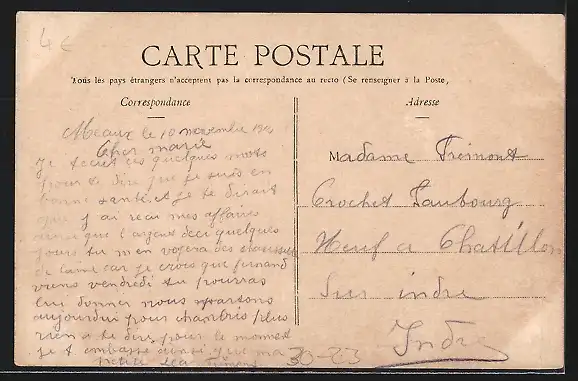 4€
CARTE POSTALE
Tous les pays étrangers n'acceptent pas la correspondance au recto (Se renseigner à la Poste,
Correspondance
Adresse
Meaux le 10 novembre
Cher marie
Je t ecrit ces quelques mots
pour te dire que je suis en
bonne santé et je te dirait
que j ai recu mes affaires
ainsi que l argent deci quelques
jours tu m en
de laine car je crois que fernand
viens vendredi tu pourras
lui donner nous partons
aujourdui pour plus
rien a te dire pour le moment
je t embrasse ainsi que ma
petite
30-23
Madame Fremont
Crochet Faubourg
Neuf a Chatillon
Sur indre
Indre